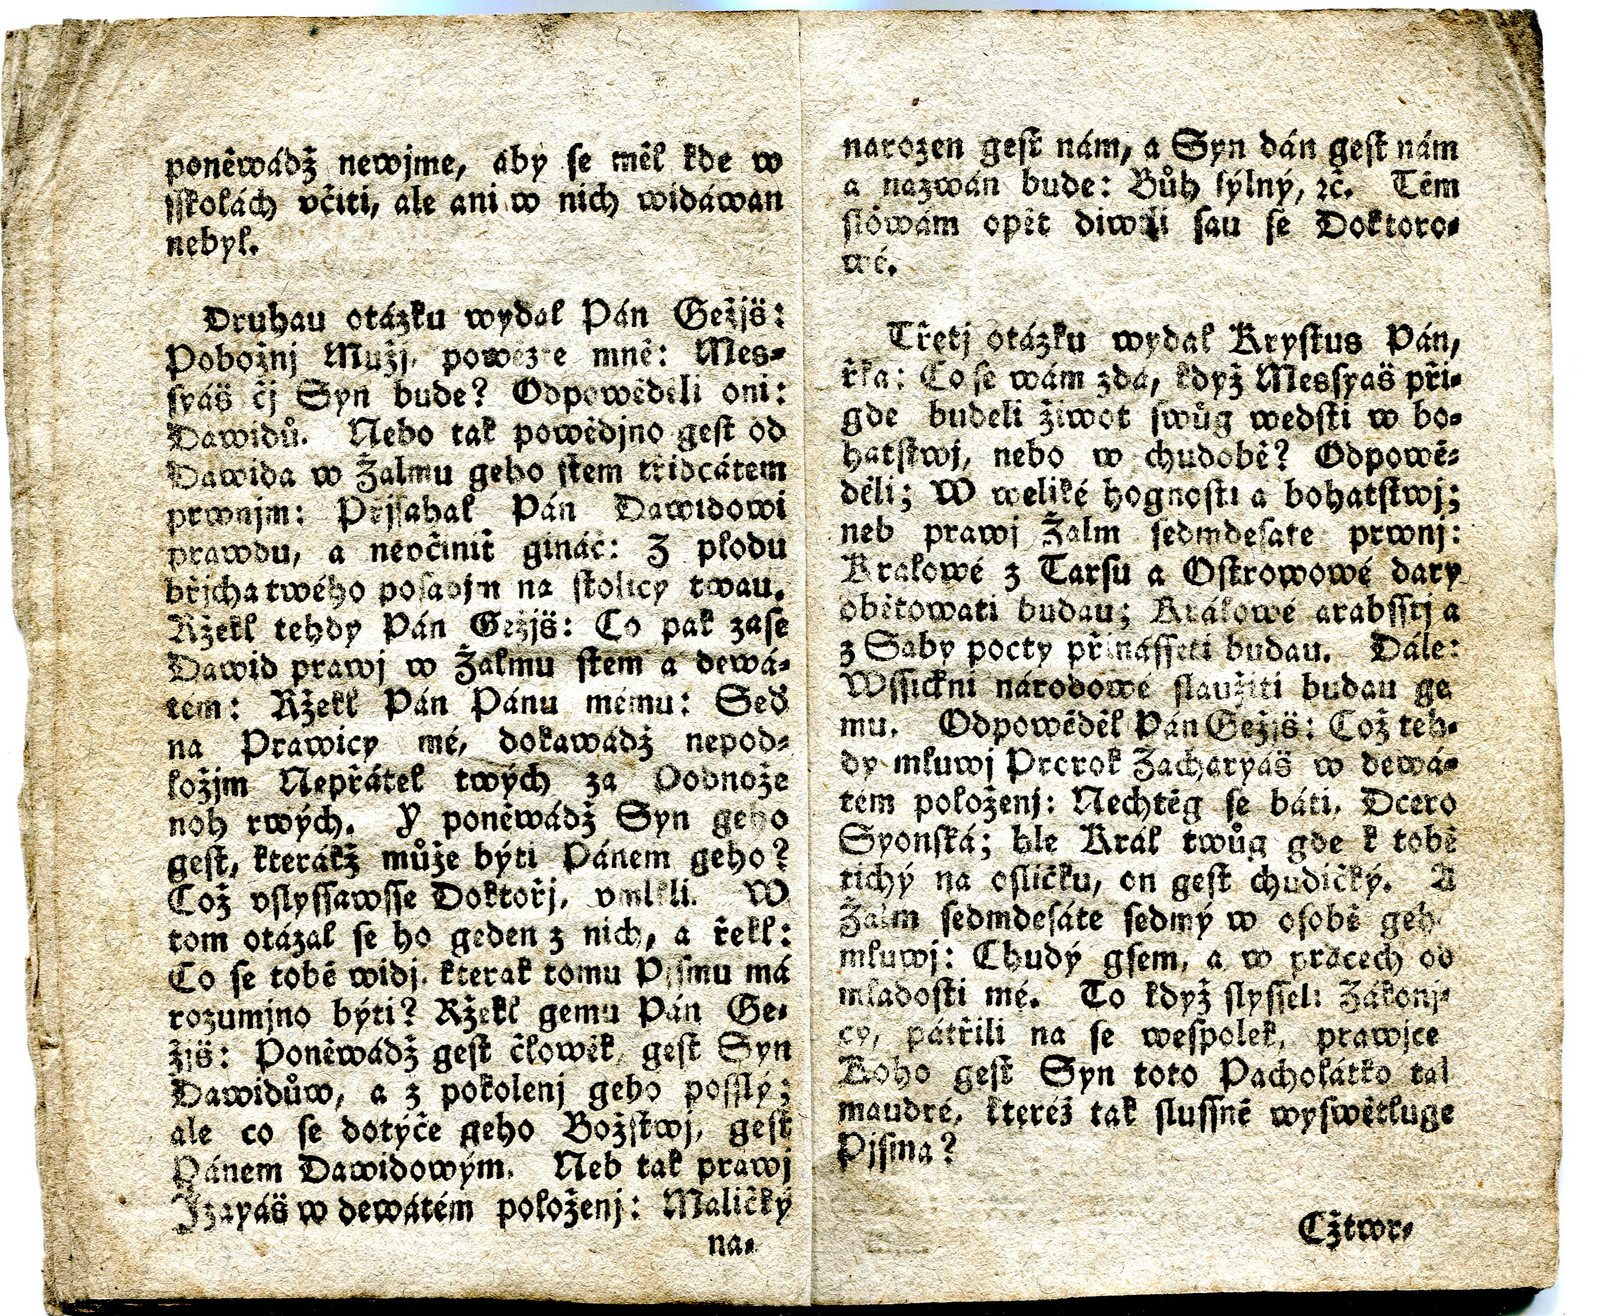 poněwádž newjme, aby se měl kde w
sskolách včiti, ale ani w nich widáwan
nebyl.
Druhau otázku wydal Pán Gežjš:
Pobožnj Mužj, powězte mně: Mes-
syáš čj Syn bude? Odpowěděli oni:
Dawidů. Nebo tak powědjno gest od
Dawida w Žalmu geho stem třidcátem
prwnjm: Přjsahal Pán Dawidowi
prawdu, a nevčinit gináč: Z plodu
břjcha twého posadjm na stolicy twau.
Ržekl tehdy Pán Gežjš: Co pak zase
Dawid prawj w Žalmu stem a dewá-
tém: Ržekl Pán Pánu mému: Seď
na Prawicy mé, dokawádž nepod-
ložjm Nepřátel twých za Podnože
noh twých. Y poněwádž Syn geho
gest, kterákž může býti Pánem geho?
Což vslyssawsse Doktořj, vmlkli. W
tom otázal se ho geden z nich, a řekl:
Co se tobě widj, kterak tomu Pjsmu má
rozumjno býti? Ržekl gemu Pán Ge-
žjš: Poněwádž gest člowěk, gest Syn
Dawidůw, a z pokolenj geho posslý;
ale co se dotýče geho Božstwj, gest
Pánem Dawidowým. Neb tak prawj
Izayáš w dewátém položenj: Maličký
na-
narozen gest nám, a Syn dán gest nám
a nazwán bude: Bůh sýlný, ꝛč. Těm
slowám opět diwili sau se Doktoro-
wé.
Třetj otázku wydal Krystus Pán,
řka: Co se wám zdá, když Messyáš při-
gde budeli žiwot swůg wedsti w bo-
hatstwj, nebo w chudobě? Odpowě-
děli; W weliké hognosti a bohatstwj;
neb prawj Žalm sedmdesate prwnj:
Kralowé z Tarsu a Ostrowowé dary
obětowati budau; Králowé arabsstj a
z Saby pocty přinásseti budau. Dále:
Wssickni národowé slaužiti budau ge
mu. Odpowěděl Pán Gežjš: Což teh-
dy mluwj Prorok Zacharyáš w dewá-
tém položenj: Nechtěg se báti, Dcero
Syonská; hle Král twůg gde k tobě
tichý na osličku, on gest chudičký. A
Žalm sedmdesáte sedmý w osobě geho
mluwj: Chudý gsem, a w pracech od
mladosti mé. To když slysseli Zákonj-
cy, pátřili na se wespolek, prawjce
Koho gest Syn toto Pacholátko tak
maudré, kteréž tak slussně wyswětluge
Pjsma?
Cžtwr-